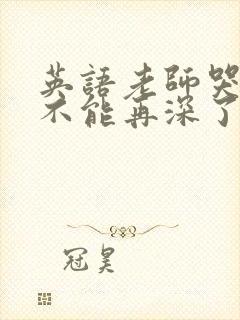 英語老師哭
不能再深了
冠昊